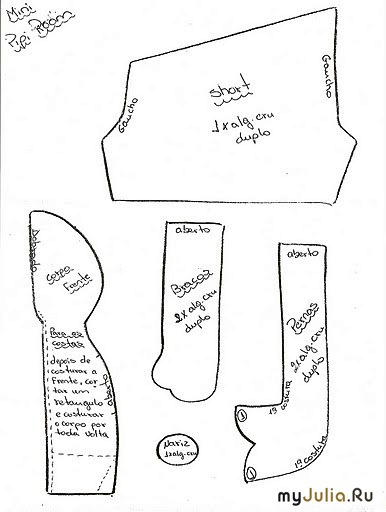 Mini
Pipi Room
short
1 x alg. cru
duplo
Gancho
Gancho
Dobrado
corpo
Frente
Para as
costas
depois de
costurar a
frente, cor
tar um
retangulo
e costurar
o corpo por
toda volta
aberto
aberto
Bracos
2x alg. cru
duplo
Nariz
1x alg. cru
aberto
Pernas
2x alg. cru
duplo
1ª costura
1ª costura
myJulia.Ru